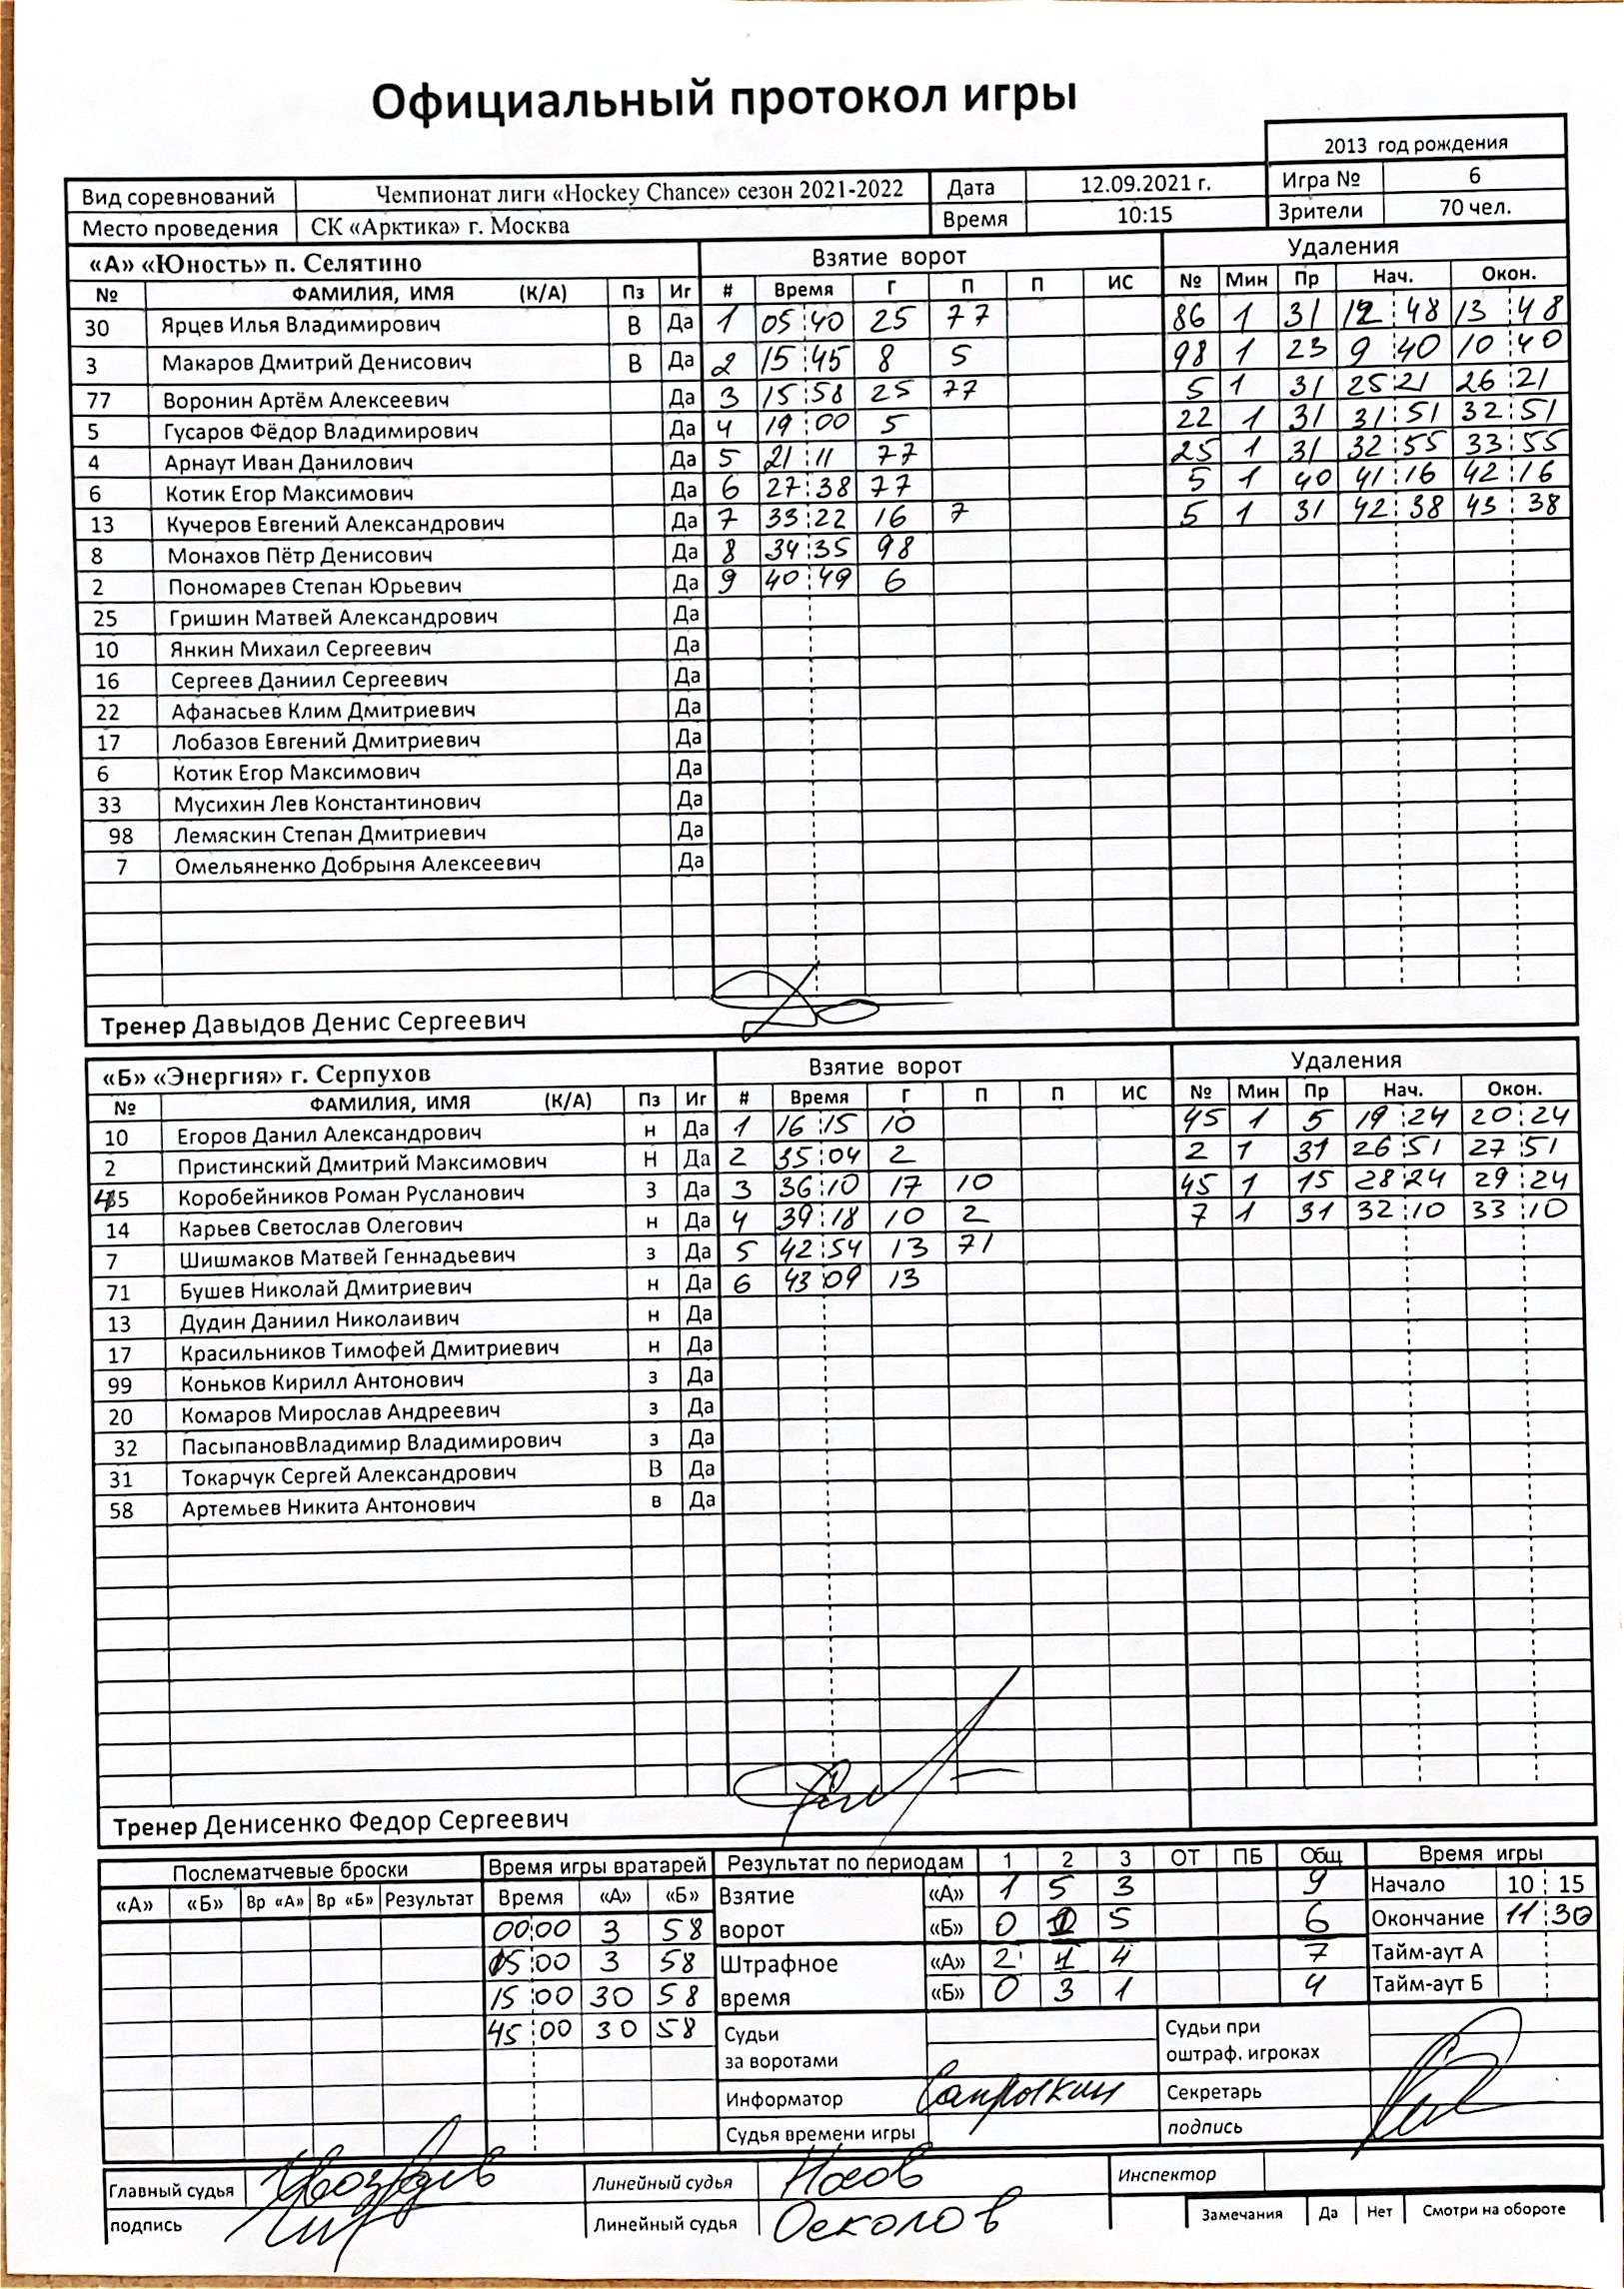 Официальный протокол игры
2013 год рождения
Вид соревнований Чемпионат лиги «Hockey Chance» сезон 2021-2022 Дата 12.09.2021 г. Игра № 6
Место проведения СК «Арктика» г. Москва Время 10:15 Зрители 70 чел.
«А» «Юность» п. Селятино Взятие ворот Удаления
№ ФАМИЛИЯ, ИМЯ (К/А) Пз Иг # Время Г П П ИС № Мин Пр Нач. Окон.
30 Ярцев Илья Владимирович В Да 1 05:40 25 77 86 1 31 12:48 13:48
3 Макаров Дмитрий Денисович В Да 2 15:45 8 5 98 1 23 9:40 10:40
77 Воронин Артём Алексеевич Да 3 15:58 25 77 5 1 31 25:21 26:21
5 Гусаров Фёдор Владимирович Да 4 19:00 5 22 1 31 31:51 32:51
4 Арнаут Иван Данилович Да 5 21:11 77 25 1 31 32:55 33:55
6 Котик Егор Максимович Да 6 27:38 77 5 1 40 41:16 42:16
13 Кучеров Евгений Александрович Да 7 33:22 16 7 5 1 31 42:38 43:38
8 Монахов Пётр Денисович Да 8 34:35 98
2 Пономарев Степан Юрьевич Да 9 40:49 6
25 Гришин Матвей Александрович Да
10 Янкин Михаил Сергеевич Да
16 Сергеев Даниил Сергеевич Да
22 Афанасьев Клим Дмитриевич Да
17 Лобазов Евгений Дмитриевич Да
6 Котик Егор Максимович Да
33 Мусихин Лев Константинович Да
98 Лемяскин Степан Дмитриевич Да
7 Омельяненко Добрыня Алексеевич Да
Тренер Давыдов Денис Сергеевич
«Б» «Энергия» г. Серпухов Взятие ворот Удаления
№ ФАМИЛИЯ, ИМЯ (К/А) Пз Иг # Время Г П П ИС № Мин Пр Нач. Окон.
10 Егоров Данил Александрович н Да 1 16:15 10 45 1 5 19:24 20:24
2 Пристинский Дмитрий Максимович Н Да 2 35:04 2 2 1 31 26:51 27:51
45 Коробейников Роман Русланович З Да 3 36:10 17 10 45 1 15 28:24 29:24
14 Карьев Светослав Олегович н Да 4 39:18 10 2 7 1 31 32:10 33:10
7 Шишмаков Матвей Геннадьевич з Да 5 42:54 13 71
71 Бушев Николай Дмитриевич н Да 6 43:09 13
13 Дудин Даниил Николаивич н Да
17 Красильников Тимофей Дмитриевич н Да
99 Коньков Кирилл Антонович з Да
20 Комаров Мирослав Андреевич з Да
32 ПасыпановВладимир Владимирович з Да
31 Токарчук Сергей Александрович В Да
58 Артемьев Никита Антонович в Да
Тренер Денисенко Федор Сергеевич
Послематчевые броски Время игры вратарей Результат по периодам 1 2 3 ОТ ПБ Общ Время игры
«А» «Б» Вр «А» Вр «Б» Результат Время «А» «Б» Взятие «А» 1 5 3 9 Начало 10:15
00:00 3 58 ворот «Б» 0 1 5 6 Окончание 11:30
15:00 3 58 Штрафное «А» 2 1 4 7 Тайм-аут А
15:00 30 58 время «Б» 0 3 1 4 Тайм-аут Б
45:00 30 58 Судьи за воротами Судьи при оштраф. игроках
Информатор Сапрыкин Секретарь
Судья времени игры подпись
Главный судья Линейный судья Носов Инспектор
подпись Линейный судья Осколов Замечания Да Нет Смотри на обороте